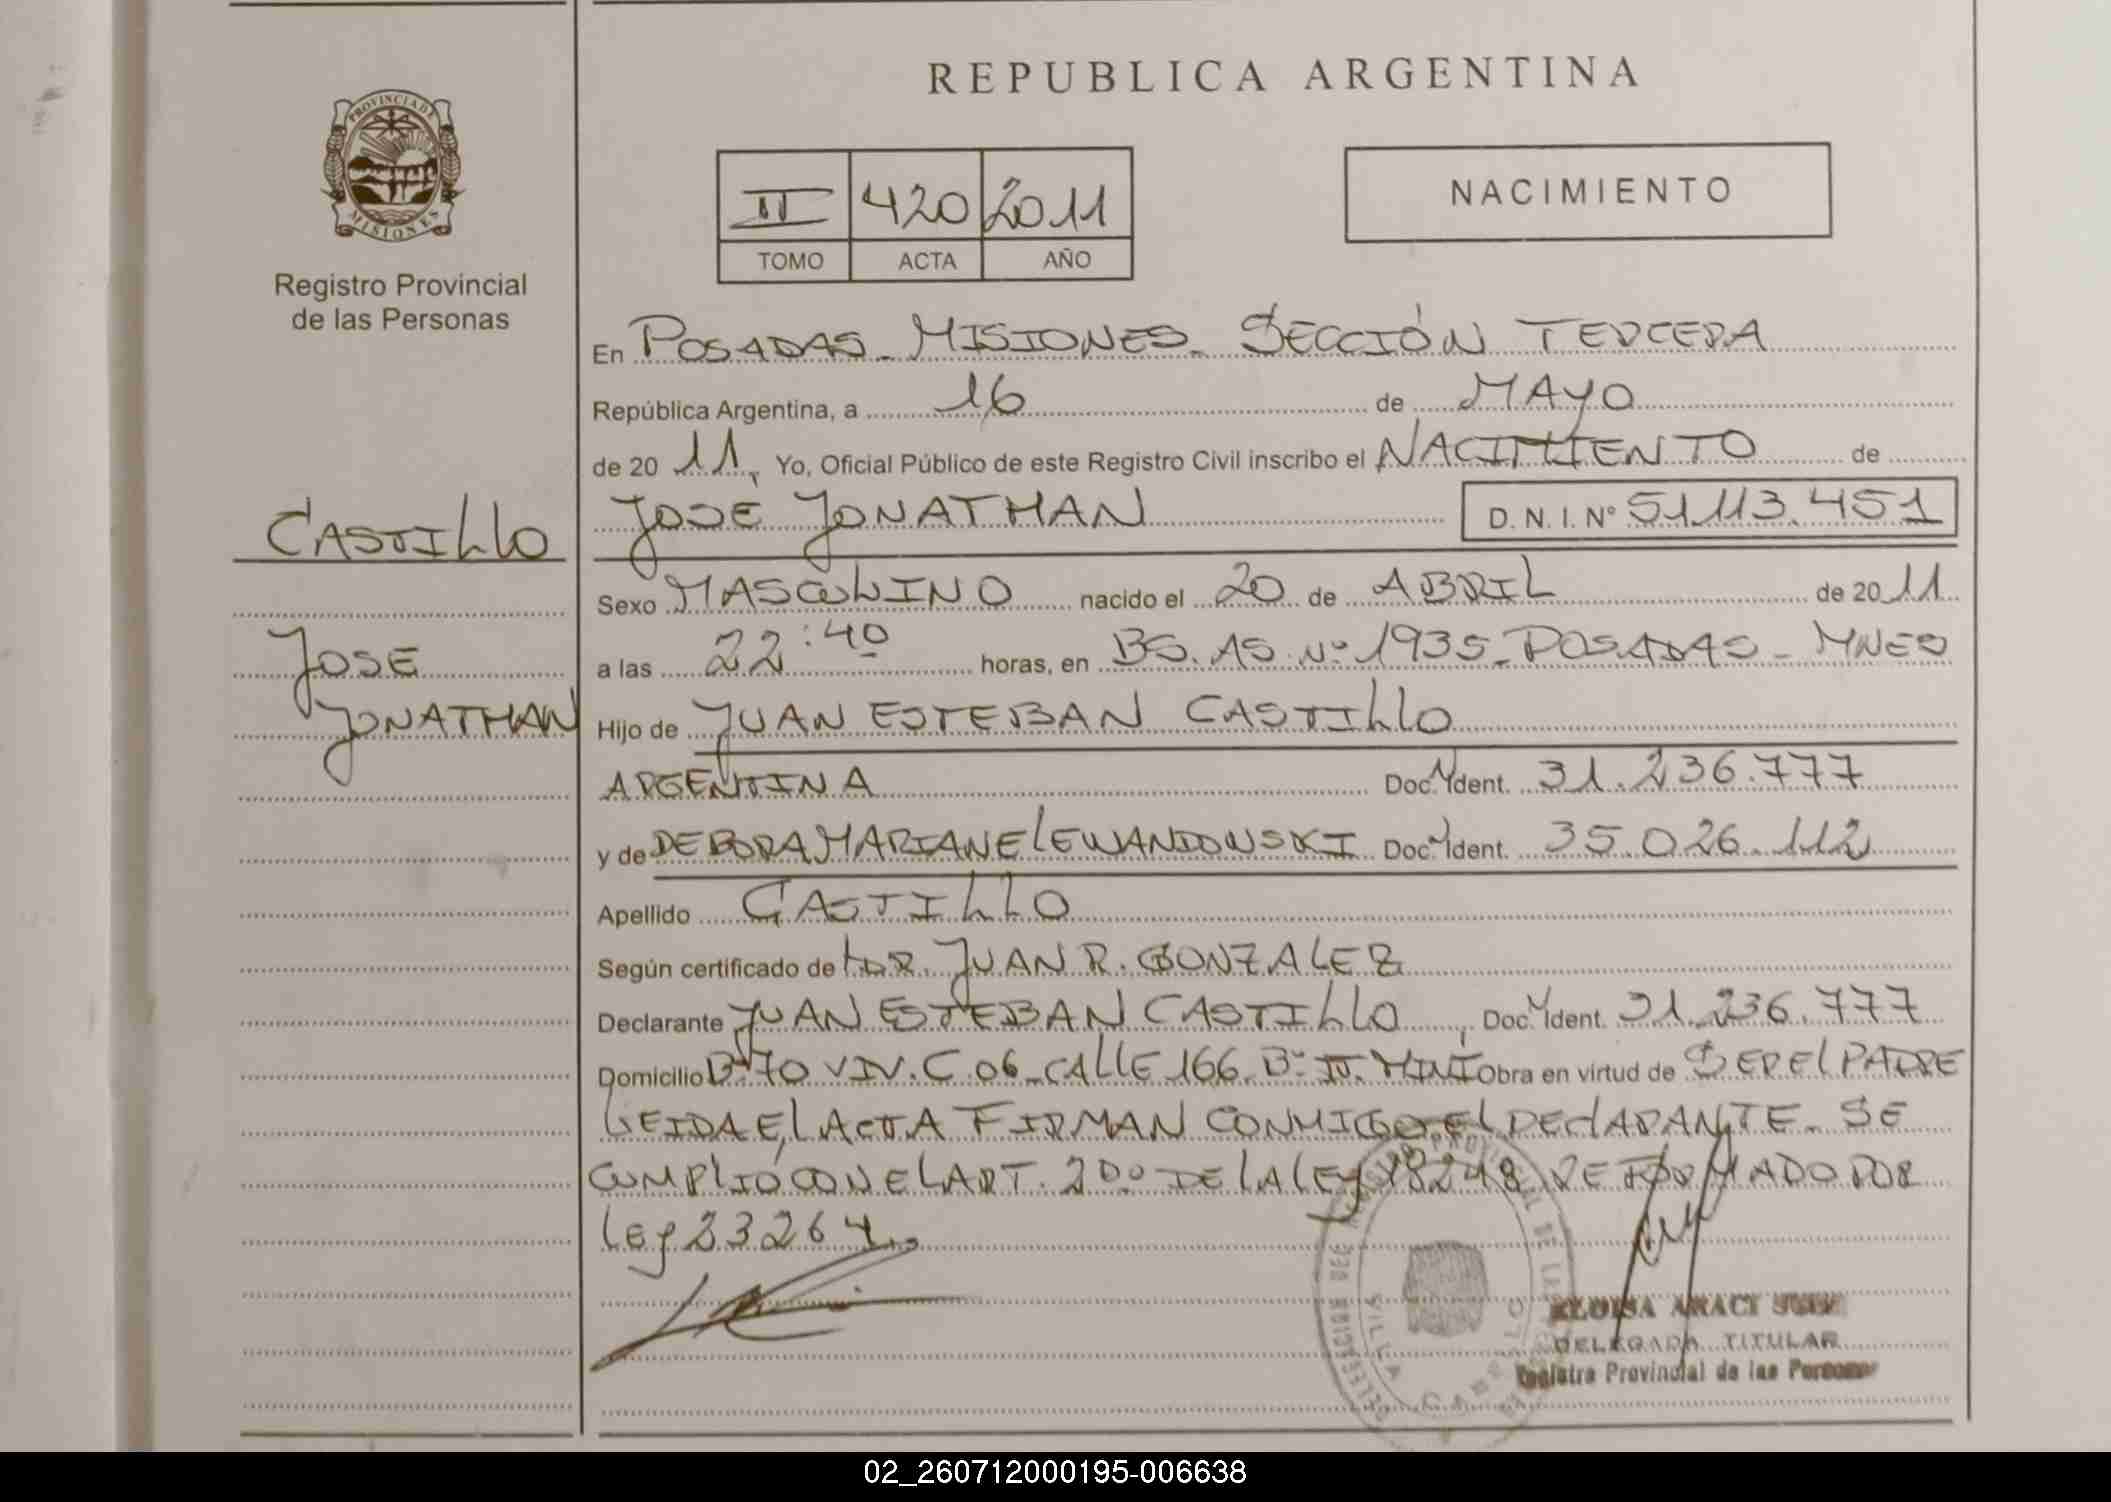 REPUBLICA ARGENTINA
PROVINCIA DE
MISIONES
Registro Provincial
de las Personas
II 420 2011
TOMO ACTA AÑO
NACIMIENTO
En POSADAS - MISIONES - SECCIÓN TERCERA
República Argentina, a 16 de MAYO
de 20 11, Yo, Oficial Público de este Registro Civil inscribo el NACIMIENTO de
CASTILLO
JOSE JONATHAN D.N.I.Nº 51.113.451
Sexo MASCULINO nacido el 20 de ABRIL de 20 11
JOSE
JONATHAN
a las 22:40 horas, en BS. AS. Nº 1935 - POSADAS - MNES
Hijo de JUAN ESTEBAN CASTILLO
ARGENTINA Doc. Ident. 31.236.777
y de DEBORA MARIANE LEWANDOWSKI Doc. Ident. 35.026.112
Apellido CASTILLO
Según certificado de DR. JUAN R. GONZALEZ
Declarante JUAN ESTEBAN CASTILLO, Doc. Ident. 31.236.777
Domicilio Bº 70 VIV. C 06 - CALLE 166 - Bº Obra en virtud de SER EL PADRE
LEIDA EL ACTA FIRMAN CONMIGO EL DECLARANTE - SE
CUMPLIO CON EL ART. 20º DE LA LEY 18248 REFORMADO POR
LEY 23264.
VILLA CABELLO
ELOISA ARACI
DELEGADA TITULAR
Registro Provincial de las Personas
02_260712000195-006638